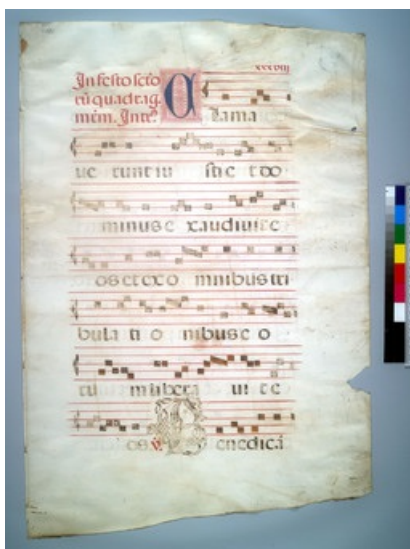 In festo scto
rũ quadrag.
Clama
ue runt iu sti e t do
minus e xaudiuit e
os et ex o mnibus tri
bula ti o nibus e o
rũ libera uit e
os ℣. Benedicã